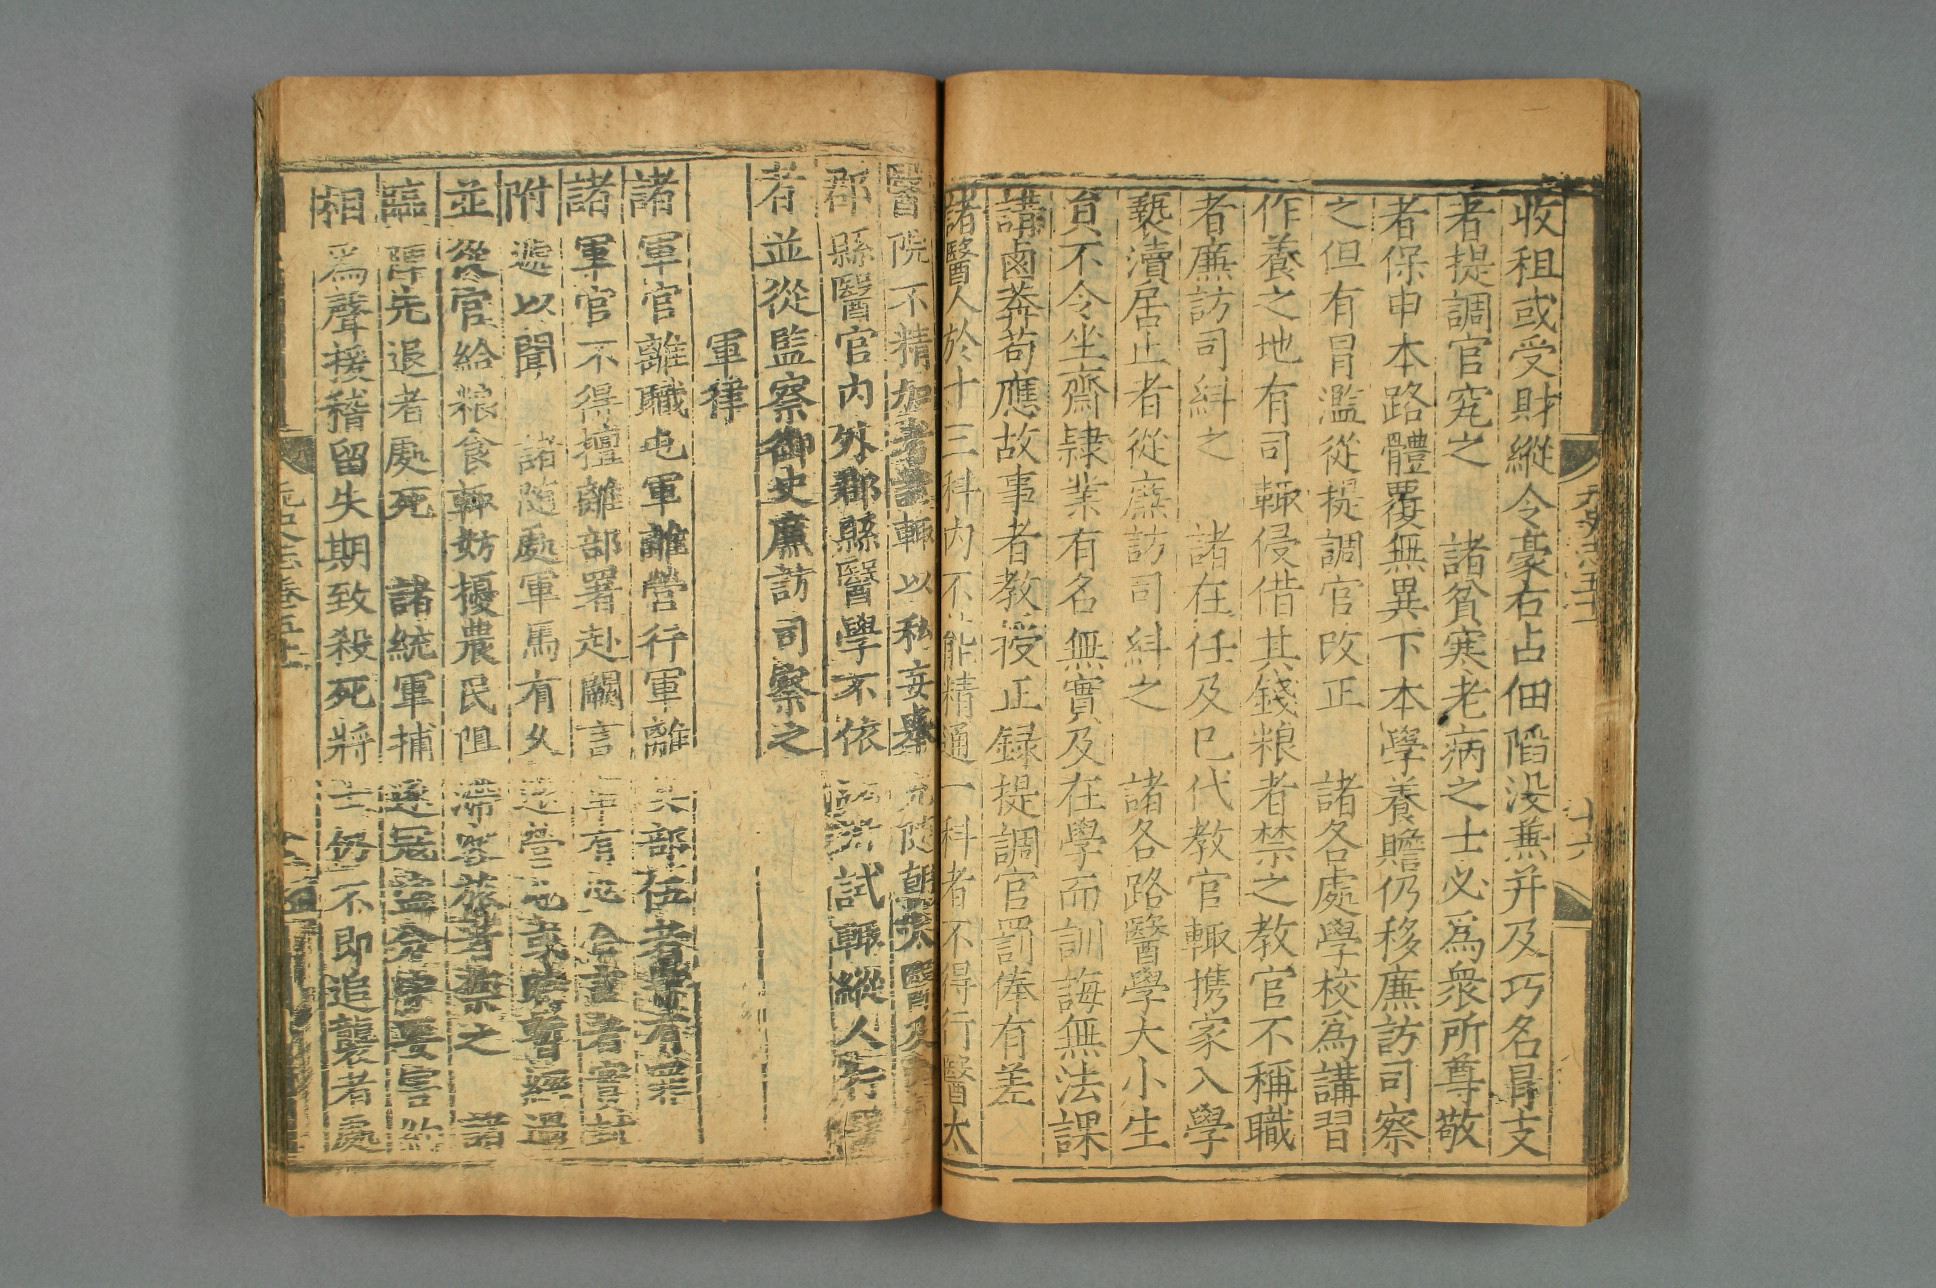 收租或受財縱令豪右占佃陷没兼并及巧名冒支
者提調官究之　諸貧寒老病之士必爲衆所尊敬
者保申本路體覆無異下本學養贍仍移廉訪司察
之但有冒濫從提調官改正　諸各處學校爲講習
作養之地有司輒侵借其錢粮者禁之教官不稱職
者廉訪司糾之　諸在任及已代教官輒携家入學
褻瀆居止者從廉訪司糾之　諸各路醫學大小生
貟不令坐齋肄業有名無實及在學而訓誨無法課
講鹵莽苟應故事者教授正録提調官罰俸有差
諸醫人於十三科内不能精通一科者不得行醫太
醫院不精加考試輒以私妄舉充隨朝太醫及
郡縣醫官内外郡縣醫學不依 試輒縱人行醫
者並從監察御史廉訪司察之
軍律
諸軍官離職屯軍離營行軍離其部伍者皆有罪
諸軍官不得擅離部署赴闕言事有
附遞以聞　諸隨處軍馬有久遠營屯或時暫經過
並從官給粮食輒妨擾農民阻滯客旅者禁之　諸
臨陣先退者處死　諸統軍捕逐寇盗分守要害約
相爲聲援稽留失期致殺死將士仍不即追襲者處
元史志卷五十一
十六
元史志卷五十一